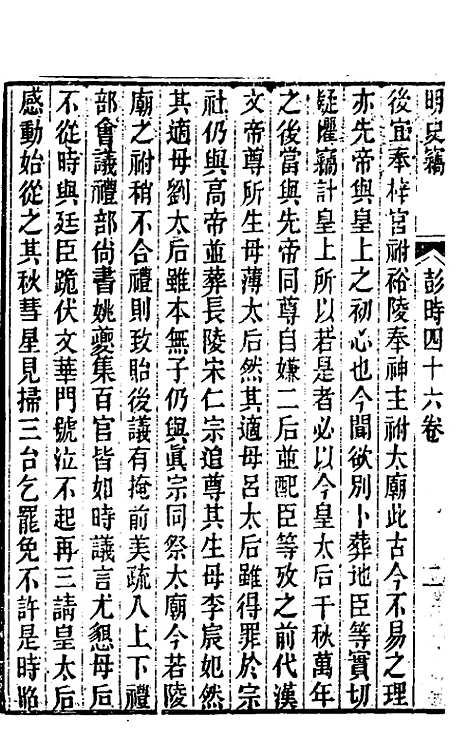 明史藳
彭時四十六卷
二
後宜奉梓官祔裕陵奉神主祔太廟此古今不易之理
亦先帝與皇上之初心也今聞欲別卜葬地臣等實切
疑懼竊計皇上所以若是者必以今皇太后千秋萬年
之後當與先帝同尊自嫌二后並配臣等攷之前代漢
文帝尊所生母薄太后然其適母呂太后雖得罪於宗
社仍與高帝並葬長陵宋仁宗追尊其生母李宸妃然
其適母劉太后雖本無子仍與眞宗同祭太廟今若陵
廟之祔稍不合禮則致貽後議有掩前美疏入上下禮
部會議禮部尚書姚夔集百官皆如時議言尤懇母后
不從時與廷臣跪伏文華門號泣不起再三請皇太后
感動始從之其秋彗星見掃三台乞罷免不許是時昭